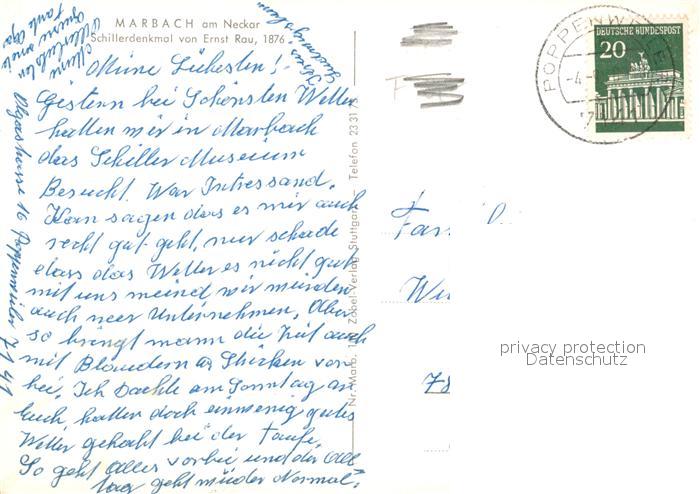 MARBACH am Neckar
Schillerdenkmal von Ernst Rau, 1876
Meine Liebesten!
Gestern bei Schönsten Wetter
hatten wir in Marbach
das Schiller Museum
Besucht. War Intressand.
Kan sagen das es mir auch
recht gut geht, nur schade
dass das Wetter es nicht gut
mit uns meind wir würden
auch neer Unternehmen. Aber
so bringt mann die Zeit auch
mit Blaudern & Stricken vor
bei. Ich Dachte am Sonntag an
Euch, hatten doch einwenig gutes
Wetter gehabt bei der Taufe.
So geht Alles vorbei und der All
tag geht wieder Normal.
Olgastrasse 16 Poppenweiler 7141
Meine
Tante
Nr. Marb. Zobel-Verlag, Stuttgart — Telefon 23 31 73
POPPENWEILER
DEUTSCHE BUNDESPOST
20
Fam
privacy protection
Datenschutz